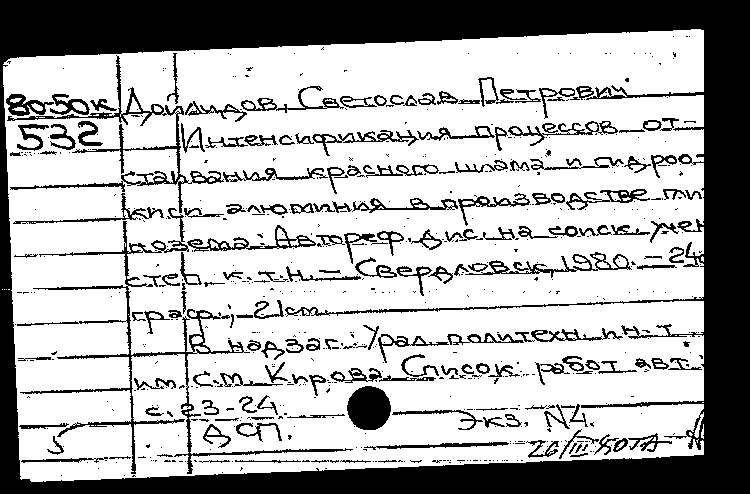 80-50к Дойлидов, Светослав Петрович
532 Интенсификация процессов от-
стаивания красного шлама и гидроо-
киси алюминия в производстве гли
нозема: Автореф. дис. на соиск. учен
степ. к.т.н. – Свердловск, 1980. – 24с
граф.; 21см.
В надзаг.: Урал. политехн. ин-т
им. С.М. Кирова. Список работ авт.:
с. 23-24.
ДСП. Экз. N4.
5 26/III